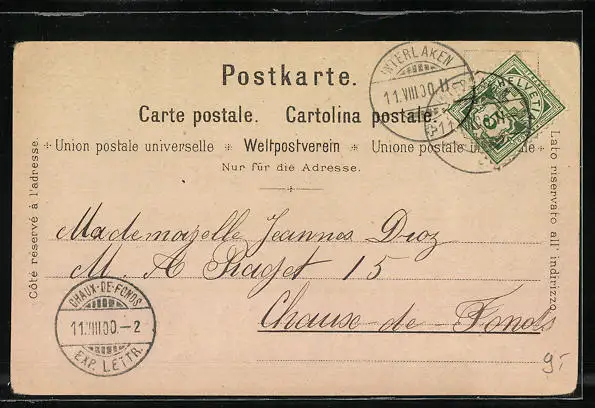 Postkarte.
Carte postale. Cartolina postale.
Union postale universelle Weltpostverein Unione postale
Nur für die Adresse.
Côté réservé à l'adresse.
Lato riservato all' indirizzo.
INTERLAKEN
11.VIII.00.
HELVETIA
5
Mademoiselle Jeannes Droz
M. A Piaget 15
Chause-de-Fonds
CHAUX-DE-FONDS
11.VIII.00.-2
EXP. LETTR.
9.-